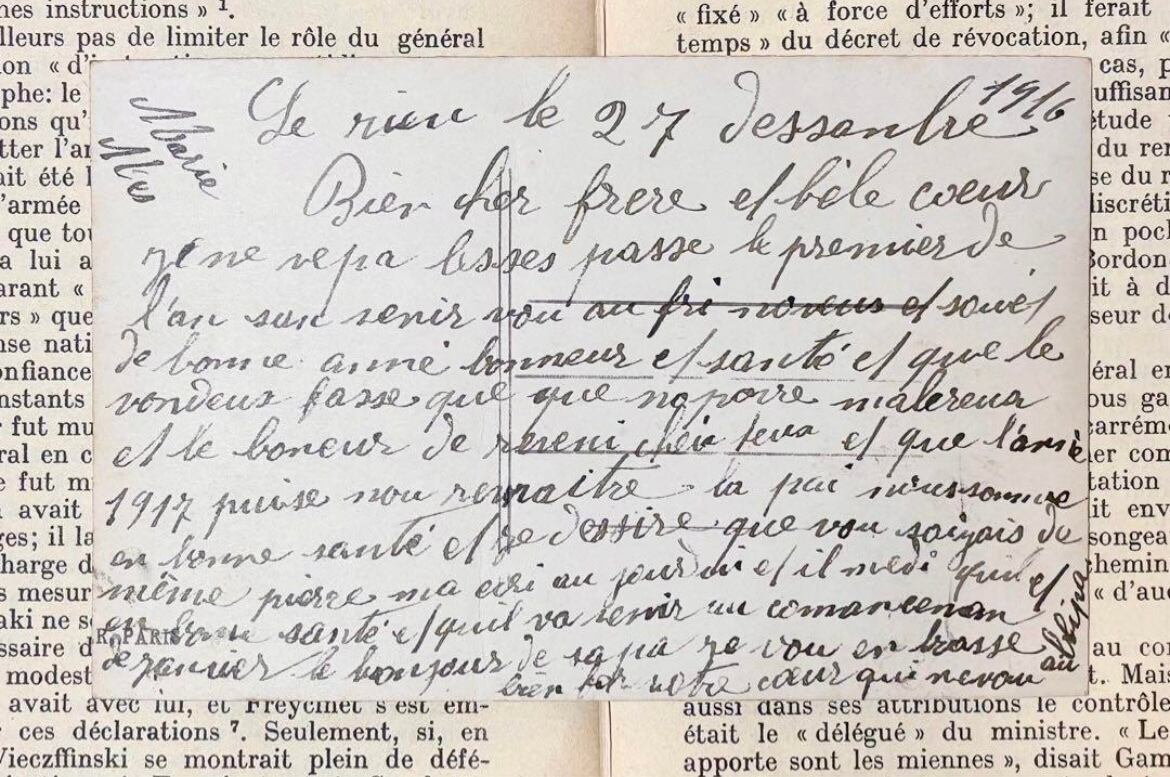 nes instructions » ¹.
lleurs pas de limiter le rôle du général
ion « d'
phe: le
ons qu'
tter l'ar
ait été l
'armée
que tou
a lui a
arant «
rs » que
nse nati
onfiance
nstants
r fut mu
ral en c
e fut m
n avait
ges; il la
charge d
s mesur
aki ne s
ssaire d
modest
avait avec lui, et Freycinet s'est em-
ces déclarations ⁷. Seulement, si, en
Vieczffinski se montrait plein de défé-
« fixé » « à force d'efforts »; il ferait
temps » du décret de révocation, afin «
cas, p
uffisan
étude
du ren
se du r
discréti
n poch
Bordon
it à d
seur de
éral en
ous ga
carréme
er com
tation
it env
songea
chemin
« d'au
au con
t. Mais
aussi dans ses attributions le contrôle
était le « délégué » du ministre. « Les
apporte sont les miennes », disait Gam
Marie
Le rieu le 27 dessanbre 1916
Bien cher frere et bèle coeur
ze ne vepa lesses passe le premier de
l'an san venir vou au fri noveus et souet
de bonne anné bonneur et santé et que le
vondeus fasse que que napoire malereur
et le boneur de reveni cheu teua et que l'anné
1917 puise nou remaitre la pai nous somme
en bonne santé et je dessire que vou soizais de
même pierre ma ecri au jourdui et il medi quil et
en bonne santé et quil va venir au comancenan
de janvier le bonjour de papa ze vou en brasse
bien for notre coeur qui nevou
oublipa
R. PARIS